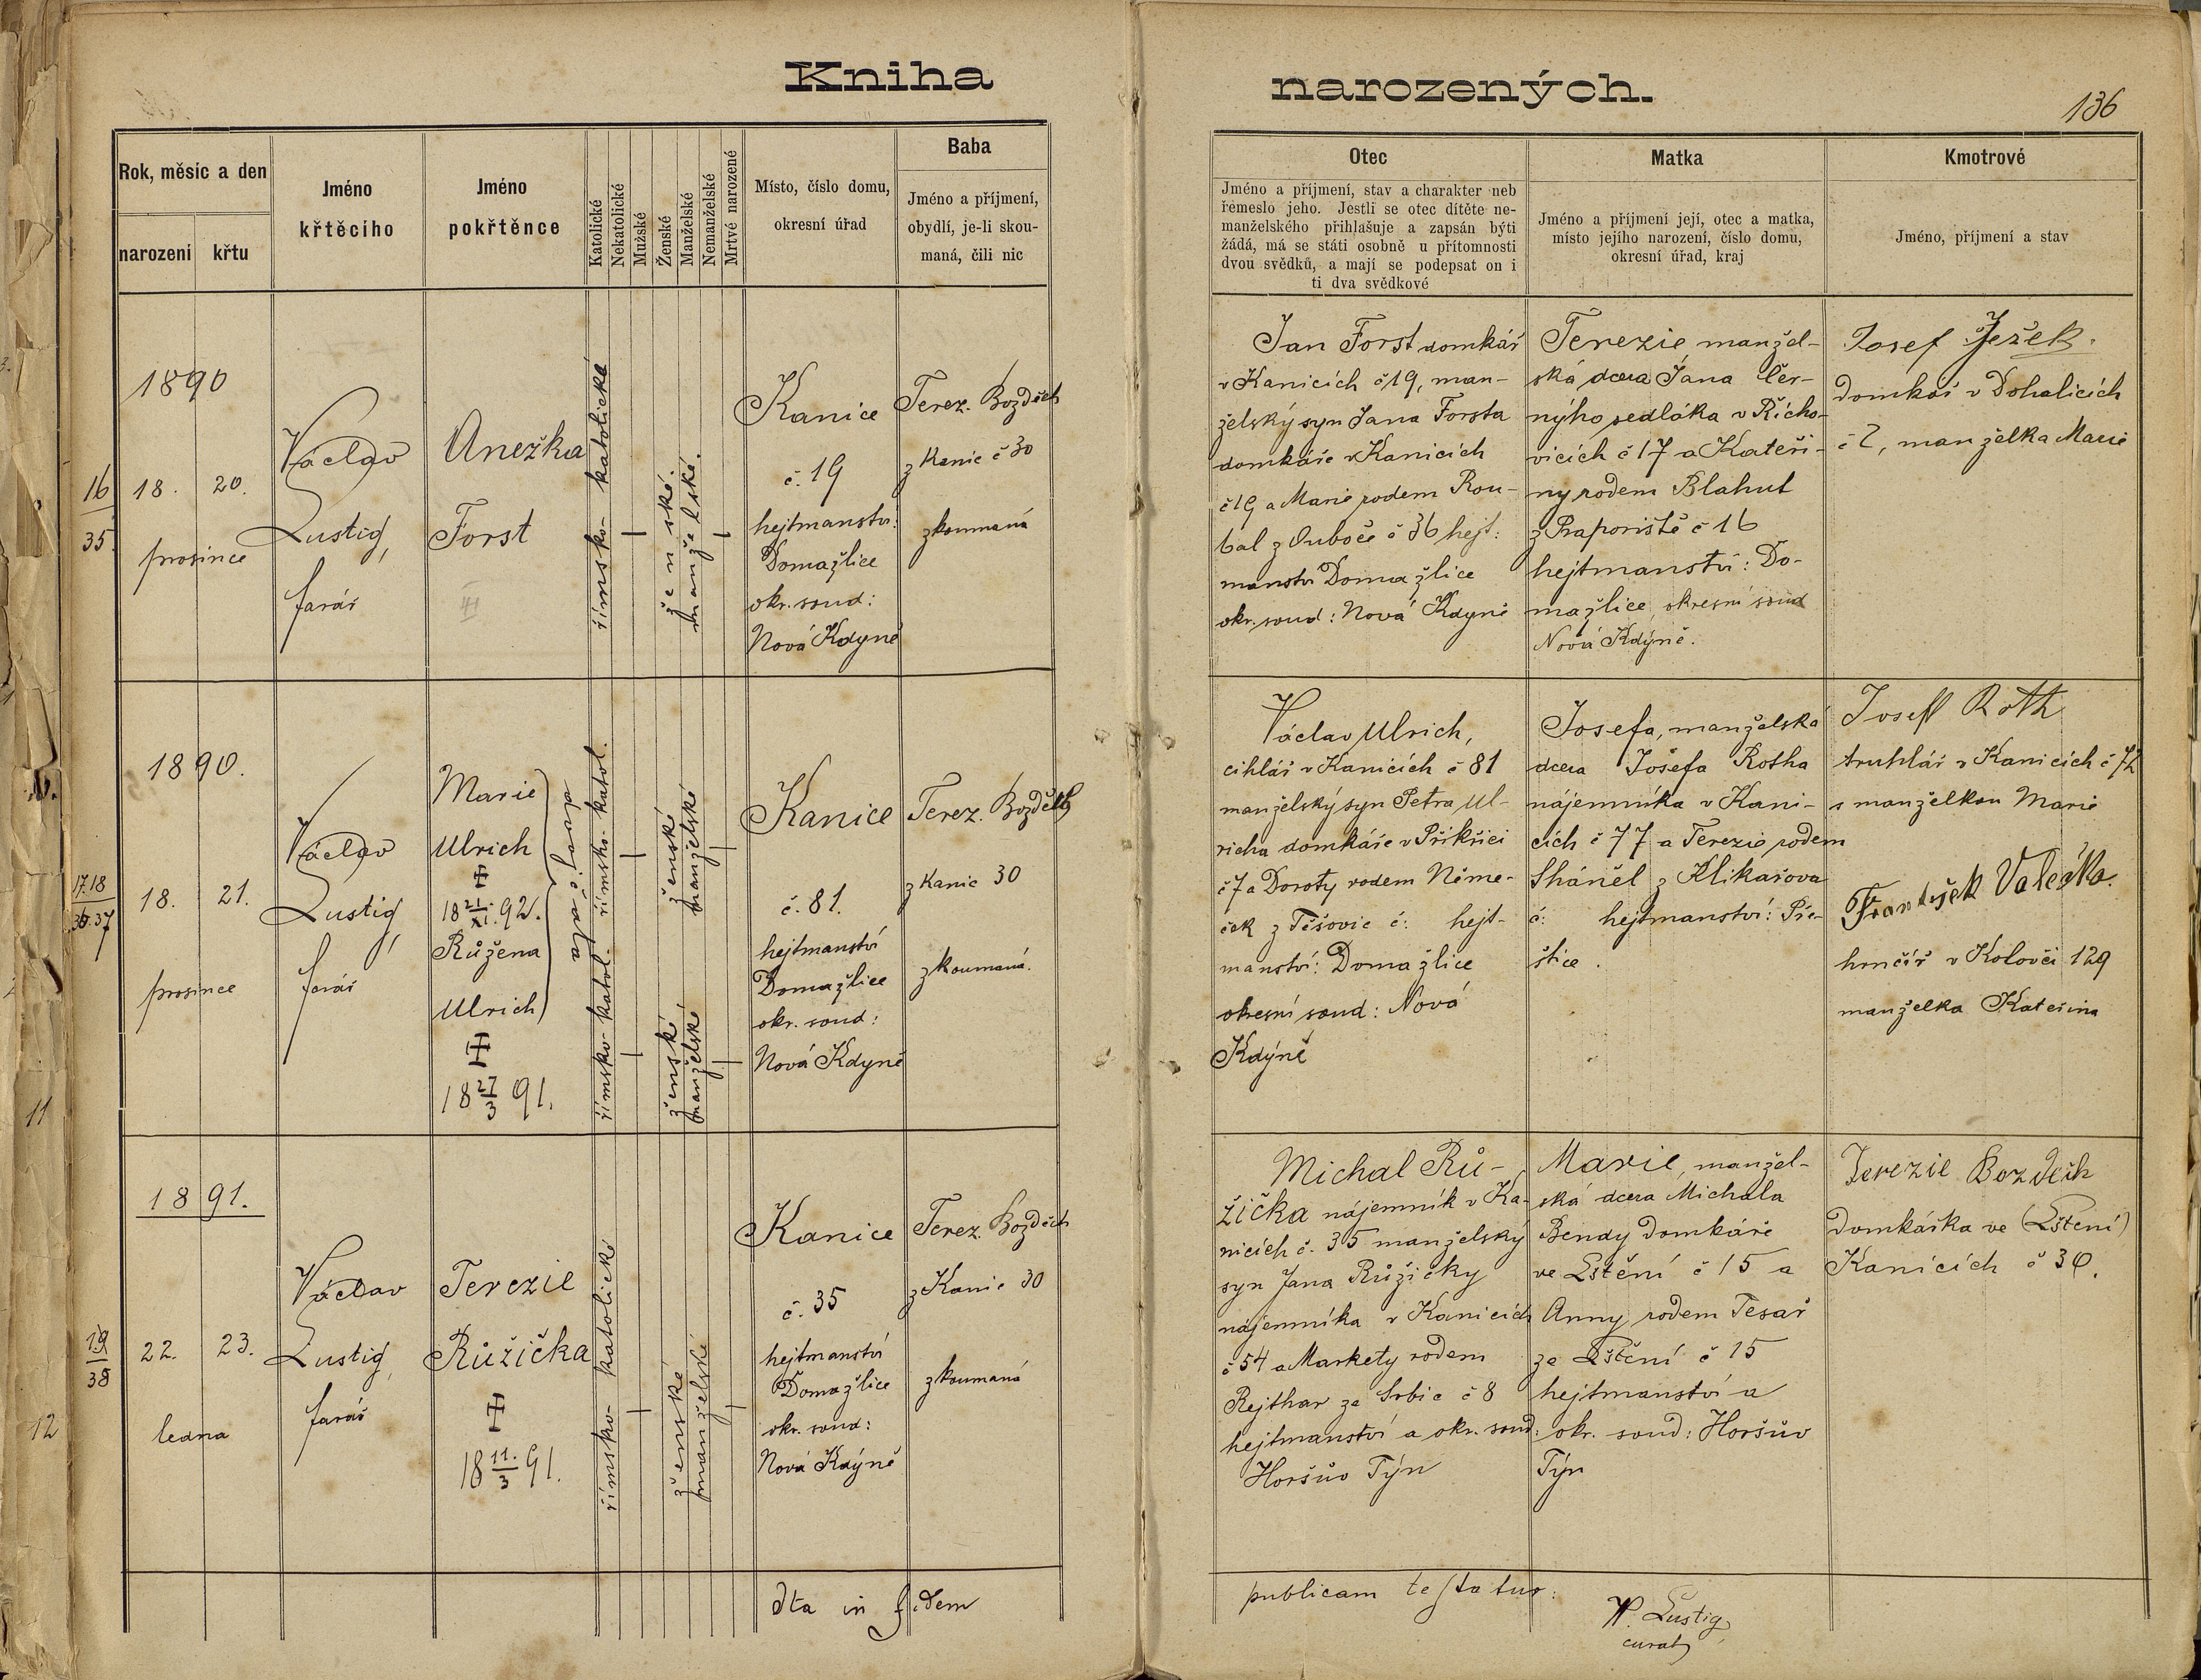 Kniha narozených.
136
Rok, měsíc a den
narození
křtu
Jméno
křtěcího
Jméno
pokřtěnce
Katolické
Nekatolické
Mužské
Ženské
Manželské
Nemanželské
Mrtvé narozené
Místo, číslo domu,
okresní úřad
Baba
Jméno a příjmení,
obydlí, je-li skou-
maná, čili nic
Otec
Jméno a příjmení, stav a charakter neb
řemeslo jeho. Jestli se otec dítěte ne-
manželského přihlašuje a zapsán býti
žádá, má se státi osobně u přítomnosti
dvou svědků, a mají se podepsat on i
ti dva svědkové
Matka
Jméno a příjmení její, otec a matka,
místo jejího narození, číslo domu,
okresní úřad, kraj
Kmotrové
Jméno, příjmení a stav
16
35.
1890
18. 20.
prosince
Václav
Lustig,
farář
Anežka
Forst
římsko-katolické
ženské.
manželské.
Kanice
č. 19
hejtmanství:
Domažlice
okr. soud:
Nová Kdyně
Terez. Bozděch
z Kanic č 30
zkoumaná
Jan Forst domkář
v Kanicích č 19, man-
želský syn Jana Forsta
domkáře v Kanicích
č 19 a Marie rodem Rou-
bal z Ouboče č 36 hejt:
manství Domažlice
okr. soud: Nová Kdyně
Terezie manžel-
ská dcera Jána Čer-
nýho sedláka v Řícho-
vicích č 17 a Kateři-
ny rodem Blahut
z Prapořiště č 16
hejtmanství: Do-
mažlice, okresní soud
Nová Kdýně.
Josef Ježek.
domkář v Dohalicích
č 2, manželka Marie
17.18
36.37
1890.
18. 21.
prosince
Václav
Lustig,
farář
Marie
Ulrich
18 21/XI. 92.
Růžena
Ulrich
18 27/3 91.
dvojčata
římsko-katol.
římsko-katol.
ženské
manželské
ženské
manželské
Kanice
č. 81.
hejtmanství
Domažlice
okr. soud:
Nová Kdyně
Terez. Bozděch
z Kanic 30
zkoumaná.
Václav Ulrich,
cihlář v Kanicích č 81
manželský syn Petra Ul-
richa domkáře v Příkřici
č 7 a Doroty rodem Něme-
ček z Těšovic č: hejt-
manství: Domažlice
okresní soud: Nová
Kdýně
Josefa, manželská
dcera Josefa Rotha
nájemníka v Kani-
cích č 77 a Terezie rodem
z Klikařova
č: hejtmanství: Pře-
štice.
Josef Roth
truhlář v Kanicích č 72
s manželkou Marie
František Valečka.
hrnčíř v Kolovči 129
manželka Kateřina
19
38
1891.
22. 23.
ledna
Václav
Lustig,
farář
Terezie
Růžička
18 11./3 91.
římsko-katolické
ženské
manželské
Kanice
č. 35
hejtmanství
Domažlice
okr. soud:
Nová Kdýně
Terez. Bozděch
z Kanic 30
zkoumaná
Michal Rů-
žička nájemník v Ka-
nicích č. 35 manželský
syn Jana Růžičky
nájemníka v Kanicích
č 54 a Markety rodem
Rejthar ze Srbic č 8
hejtmanství a okr. soud:
Horšův Týn
Marie, manžel-
ská dcera Michala
Bendy domkáře
ve Lštění č 15 a
Anny rodem Tesař
ze Lštění č 15
hejtmanství a
okr. soud: Horšův
Týn
Terezie Bozděch
domkářka ve (Lštení)
Kanicích č 30.
Ita in fidem publicam testatur:
W. Lustig,
curat
11
12